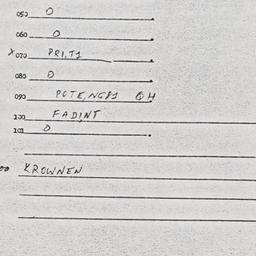 050 0
060 0
X 070 PRI,T1
080 0
090 POTE,NGP1 QH
100 FADINT
101 0
KROWNEN